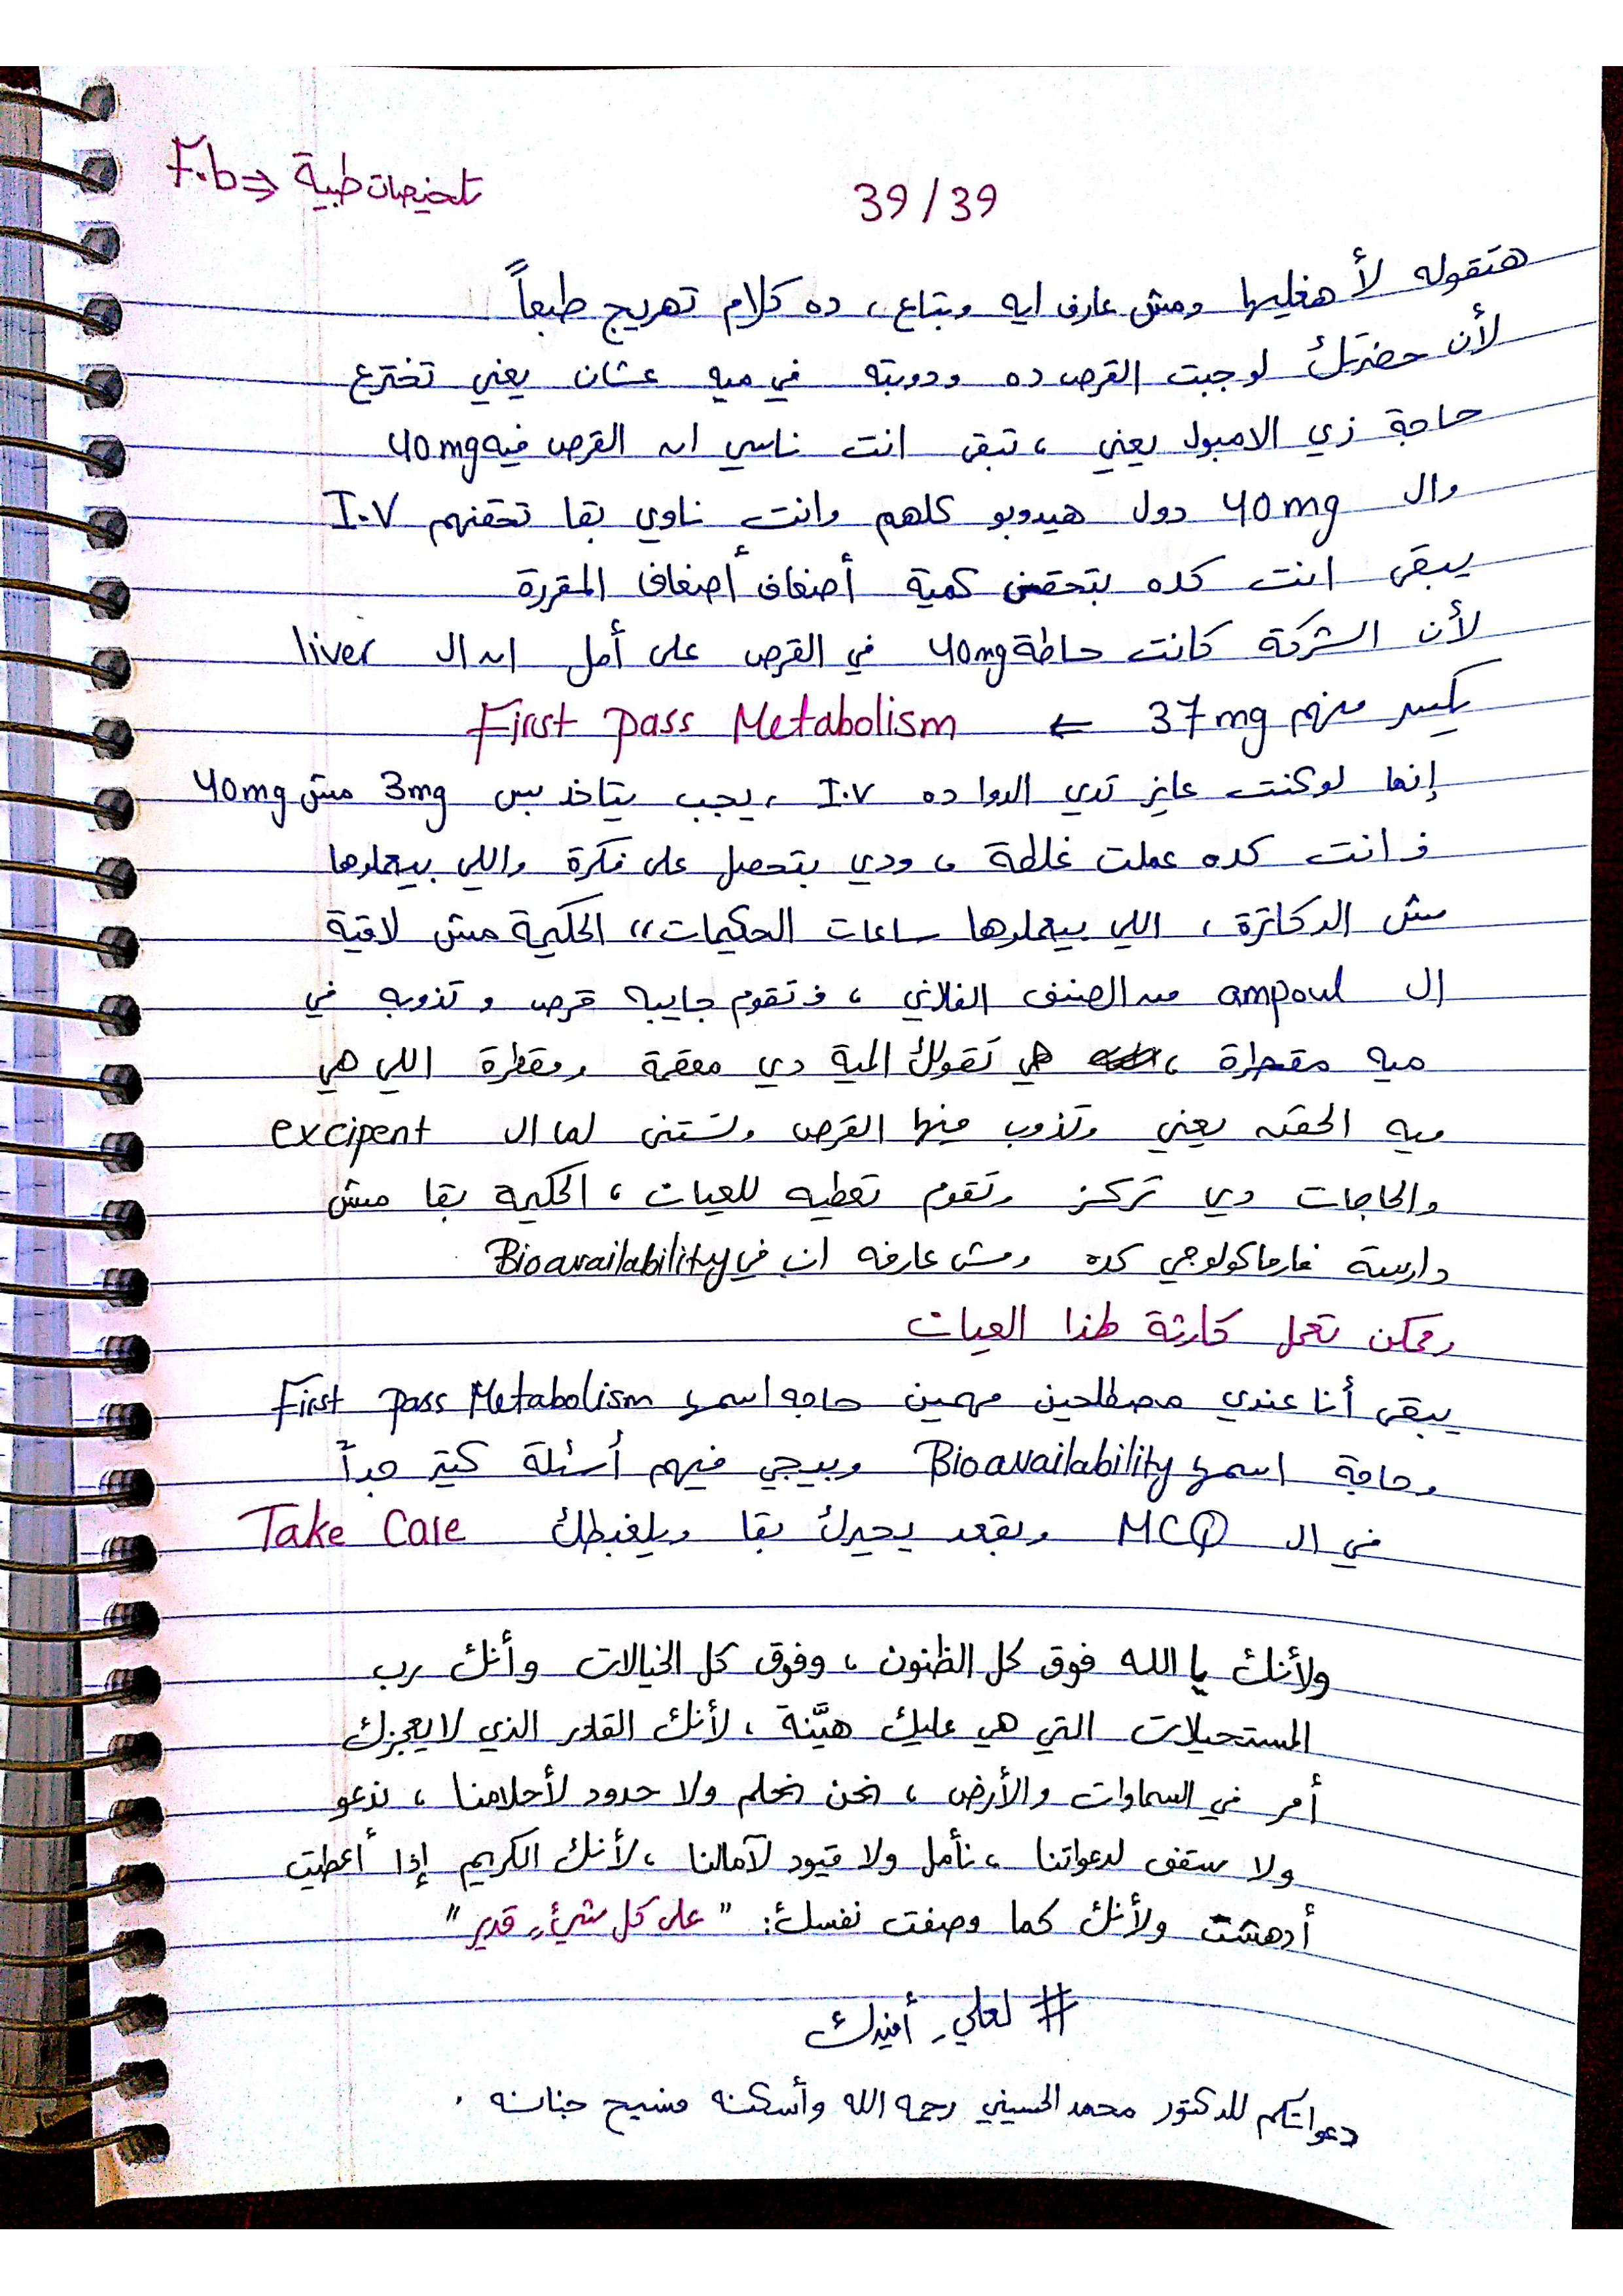 F.b => تلخيصات طبية
39/39
هتقوله لأ هغليها ومش عارف ايه وبتاع ، ده كلام تهريج طبعاً
لأن حضرتك لو جبت القرص ده ودوبته في ميه عشان يعني تخترع
حاجة زي الامبول يعني ، تبقى انت ناسي ان القرص فيه 40mg
وال 40mg دول هيدوبو كلهم وانت ناوي بقا تحقنهم I.V
يبقى انت كده بتحقن كمية أضعاف أضعاف المقررة
لأن الشركة كانت حاطة 40mg في القرص على أمل ان ال liver
يكسر منهم 37mg ← First pass Metabolism
إنما لو كنت عايز تدي الدوا ده I.V ، يجب يتاخد بس 3mg مش 40mg
ف انت كده عملت غلطة ، ودي بتحصل على فكرة واللي بيعملوها
مش الدكاترة ، اللي بيعملوها ساعات الحكيمات ،، الحكيمة مش لاقية
ال ampoul من الصنف الفلاني ، ف تقوم جايبه قرص و تذوبه في
ميه مقطرة ، هي تقولك المية دي معقمة ومقطرة اللي هي
ميه الحقنه يعني وتذوب فيها القرص وتستنى لما ال excipent
والحاجات دي تركز وتقوم تعطيه للعيان ، الحكيمة بقا مش
دارسة فارماكولوجي كده ومش عارفه ان في Bioavailability
وممكن تعمل كارثة لهذا العيان
يبقى أنا عندي مصطلحين مهمين حاجه اسمها First pass Metabolism
وحاجة اسمها Bioavailability وبيجي فيهم أسئلة كتير جداً
في ال MCQ وبقعد يحيرك بقا ويلغبطك Take Care
ولأنك يا الله فوق كل الظنون ، وفوق كل الخيالات وأنك رب
المستحيلات التي هي عليك هيّنة ، لأنك القادر الذي لا يعجزك
أمر في السماوات والأرض ، نحن نحلم ولا حدود لأحلامنا ، ندعو
ولا سقف لدعواتنا ، نأمل ولا قيود لآمالنا ، لأنك الكريم إذا أعطيت
أدهشت ولأنك كما وصفت نفسك : " على كل شيءٍ قدير "
# لعلي_أفيدك
دعواتكم للدكتور محمد الحسيني رحمه الله وأسكنه فسيح جناته .